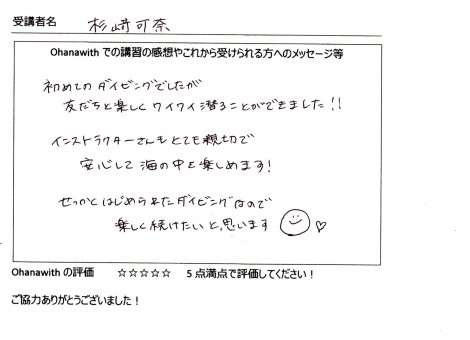 受講者名 杉崎可奈
Ohanawith での講習の感想やこれから受けられる方へのメッセージ等
初めてのダイビングでしたが
友だちと楽しくワイワイ潜ることができました!!
インストラクターさんもとても親切で
安心して海の中を楽しめます!
せっかくはじめられたダイビングなので
楽しく続けたいと思います
Ohanawith の評価 ☆☆☆☆☆ 5 点満点で評価してください!
ご協力ありがとうございました!